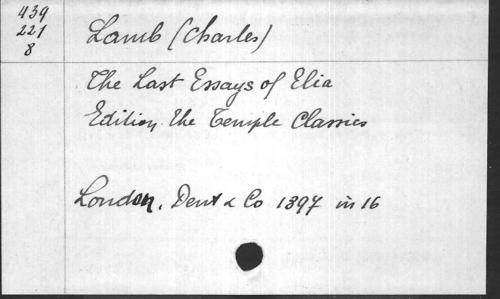 439
221
8
Lamb (Charles)
The Last Essays of Elia
Edition The Temple Classics
London, Dent & Co 1897 in 16